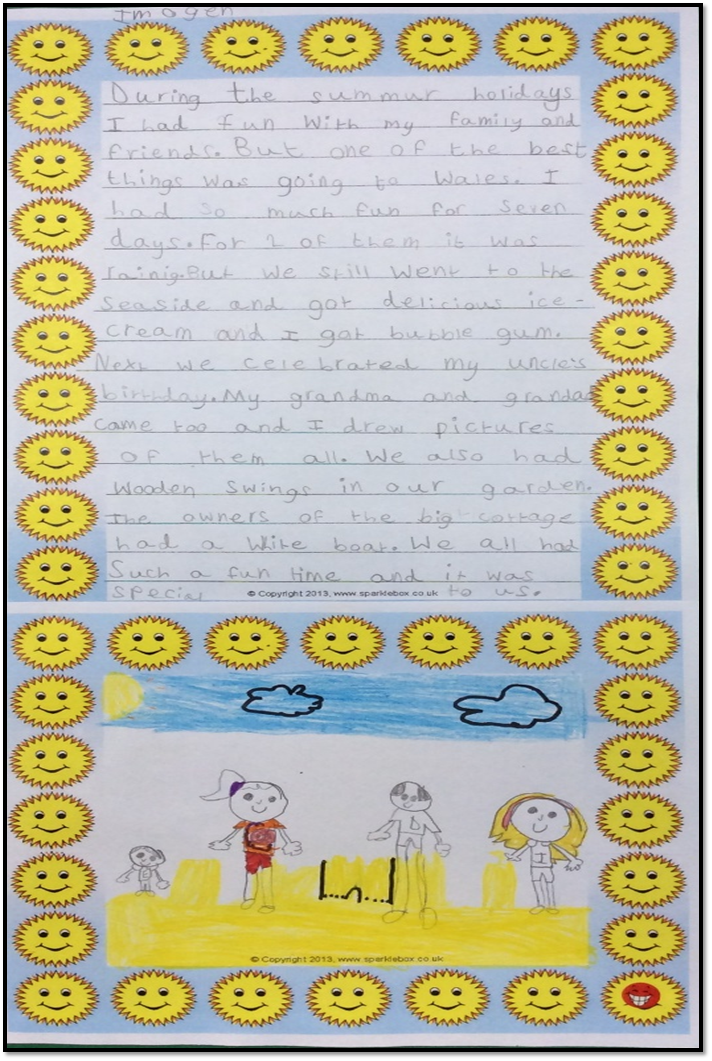 Imogen
During the summur holidays
I had fun With my family and
friends. But one of the best
things was going to Wales. I
had so much fun for seven
days. For 2 of them it was
rainig. But we still went to the
seaside and got delicious ice-
cream and I got bubble gum.
Next we celebrated my uncle's
birthday. My grandma and grandad
came too and I drew pictures
of them all. We also had
wooden swings in our garden.
The owners of the big cottage
had a white boat. We all had
Such a fun time and it was
special to us.
© Copyright 2013, www.sparklebox.co.uk
© Copyright 2013, www.sparklebox.co.uk